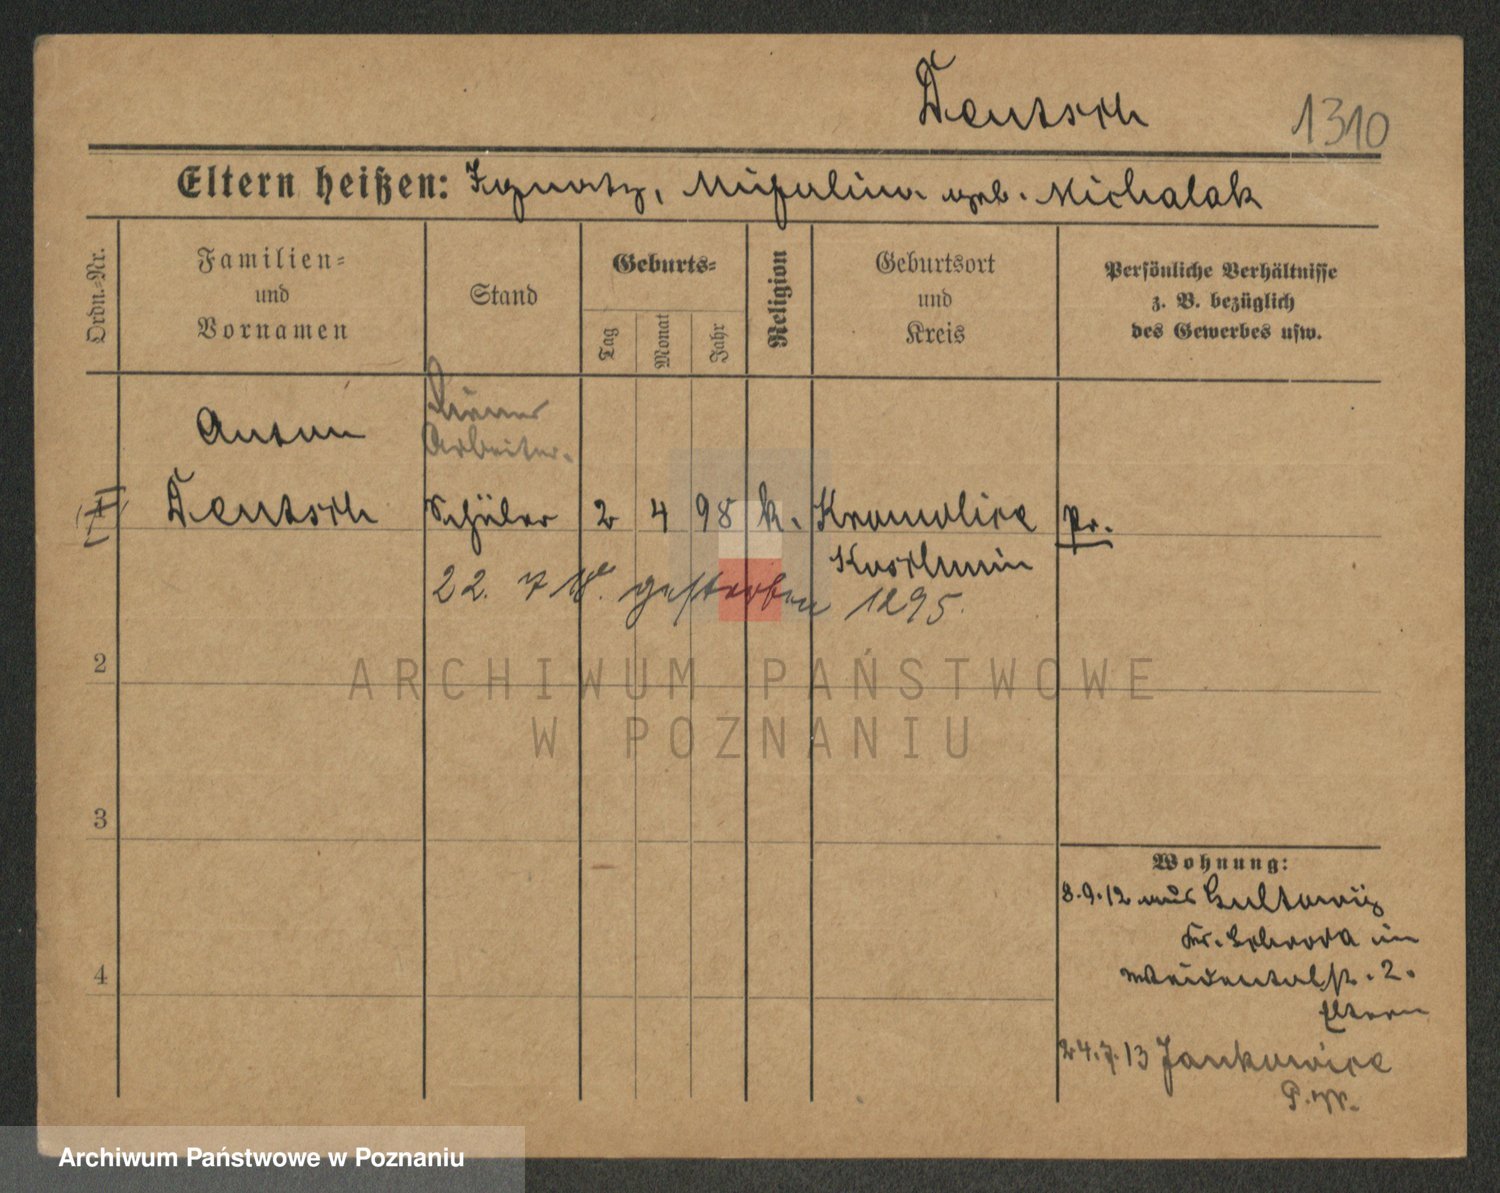 Deutsch
1310
Eltern heißen: Ignatz, Michalina geb. Michalak
Ordn.-Nr.
Familien-
und
Vornamen
Stand
Geburts-
Tag
Monat
Jahr
Religion
Geburtsort
und
Kreis
Persönliche Verhältnisse
z. B. bezüglich
des Gewerbes usw.
Diener
Anton
Arbeiter.
1
Deutsch
Schüler
2
4
98
k.
Kromolice
Pr.
Koschmin
22. 7 18. gestorben 1295.
2
ARCHIWUM PAŃSTWOWE
W POZNANIU
3
Wohnung:
8.9.12 aus Gultowitz
Kr. Schroda in
4
Weidentalstr. 2.
Eltern
24.7.13 Jankowice
P.W.
Archiwum Państwowe w Poznaniu